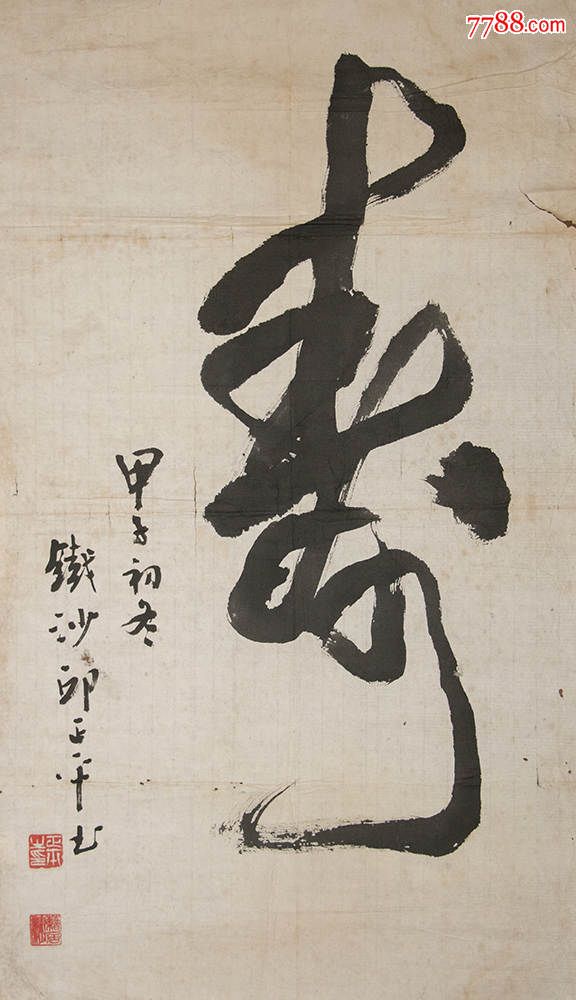 7788.com
壽
甲子初冬
鐵沙邱正平書